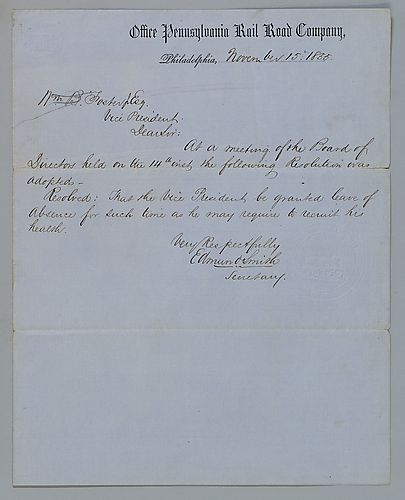 Office Pennsylvania Rail Road Company,
Philadelphia, November 15th 1855
Wm B. Foster Jr Esq.
Vice President.
Dear Sir:
At a meeting of the Board of
Directors held on the 14th inst the following Resolution was
adopted—
Resolved: That the Vice President be granted leave of
Absence for such time as he may require to recruit his
health.
Very Respectfully
Edmund Smith
Secretary.